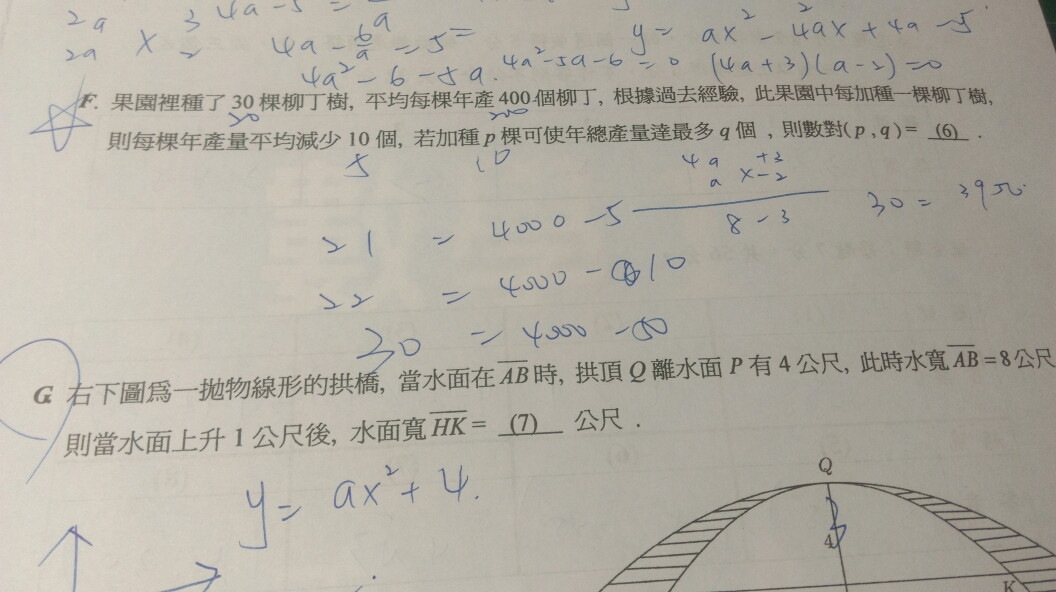 2a 3 4a-5 =
2a X 2 4a - 6/a = 5 y = ax² - 4ax + 4a - 5
4a² - 6 - 5a. 4a²-5a-6=0 (4a+3)(a-2)=0
F. 果園裡種了 30 棵柳丁樹, 平均每棵年產 400 個柳丁, 根據過去經驗, 此果園中每加種一棵柳丁樹,
則每棵年產量平均減少 10 個, 若加種 p 棵可使年總產量達最多 q 個 , 則數對(p , q) = (6) .
5 10
4a +3
a X -2
8-3
21 = 4000 - 5
30 =
22 = 4000 - 10
30 = 4000 - 50
G. 右下圖為一拋物線形的拱橋, 當水面在 AB 時, 拱頂 Q 離水面 P 有 4 公尺, 此時水寬 AB = 8 公尺
則當水面上升 1 公尺後, 水面寬 HK = (7) 公尺 .
y = ax² + 4.
Q
4
K